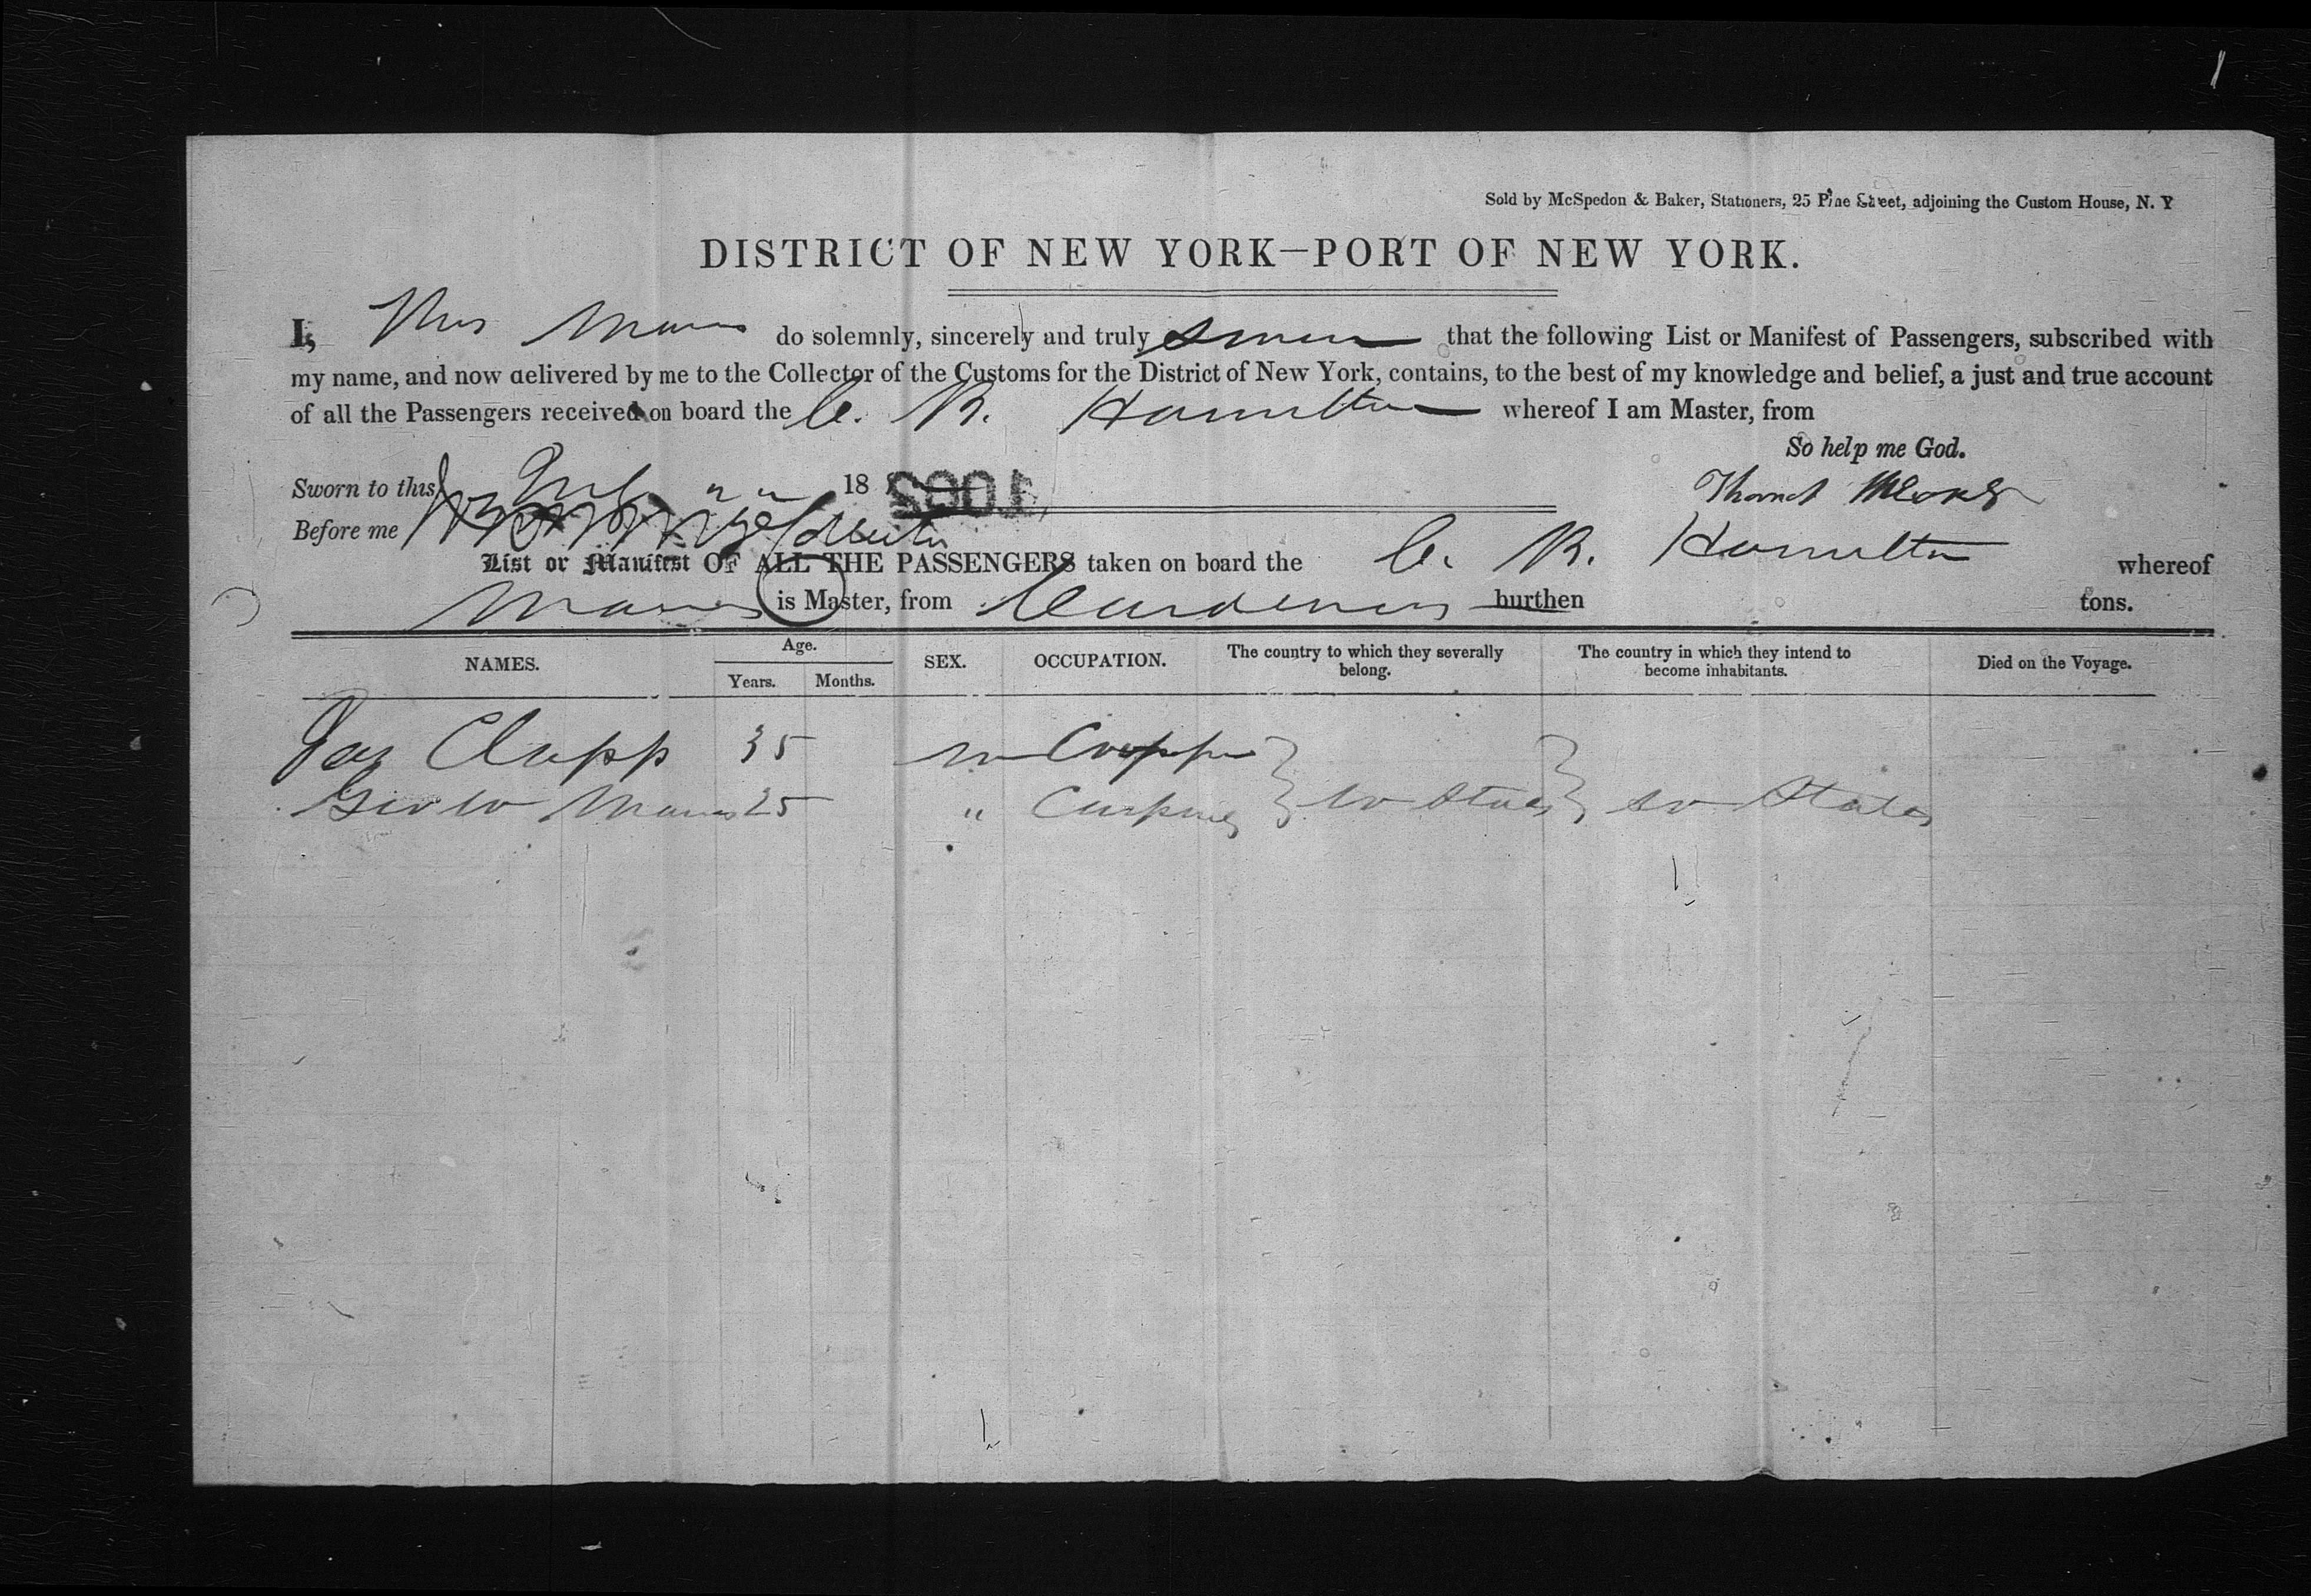 Sold by McSpedon & Baker, Stationers, 25 Pine Street, adjoining the Custom House, N. Y
DISTRICT OF NEW YORK—PORT OF NEW YORK.
I, do solemnly, sincerely and truly swear that the following List or Manifest of Passengers, subscribed with
my name, and now delivered by me to the Collector of the Customs for the District of New York, contains, to the best of my knowledge and belief, a just and true account
of all the Passengers received on board the C. R. Hamilton whereof I am Master, from
So help me God.
Sworn to this 18
Before me
List or Manifest OF ALL THE PASSENGERS taken on board the C. R. Hamilton whereof
is Master, from Cardenas burthen tons.
NAMES. Age. Years. Months. SEX. OCCUPATION. The country to which they severally belong. The country in which they intend to become inhabitants. Died on the Voyage.
Jas Clapp 35 m
Geo W 25 " States States